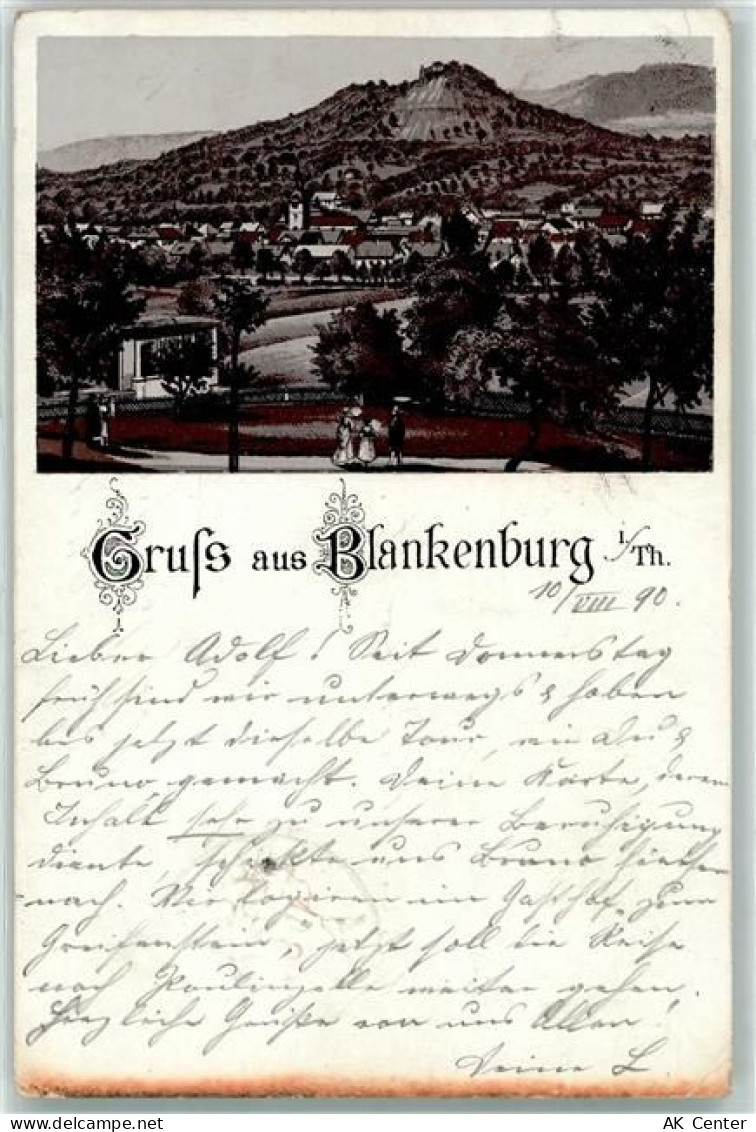 Gruſs aus Blankenburg i/Th.
10/VIII 90.
Lieber Adolf! Seit Donnerstag
früh sind wir unterwegs & haben
bis jetzt dieselbe Tour, wie Du &
Bruno, gemacht. Deine Karte, deren
Inhalt sehr zu unserer Beruhigung
diente, schickte uns Bruno hierher
nach. Wir logieren im Gasthof zum
Greifenstein, jetzt soll die Reise
nach Paulinzelle weiter gehen.
Herzliche Grüße von uns Allen!
Deine L
AK Center